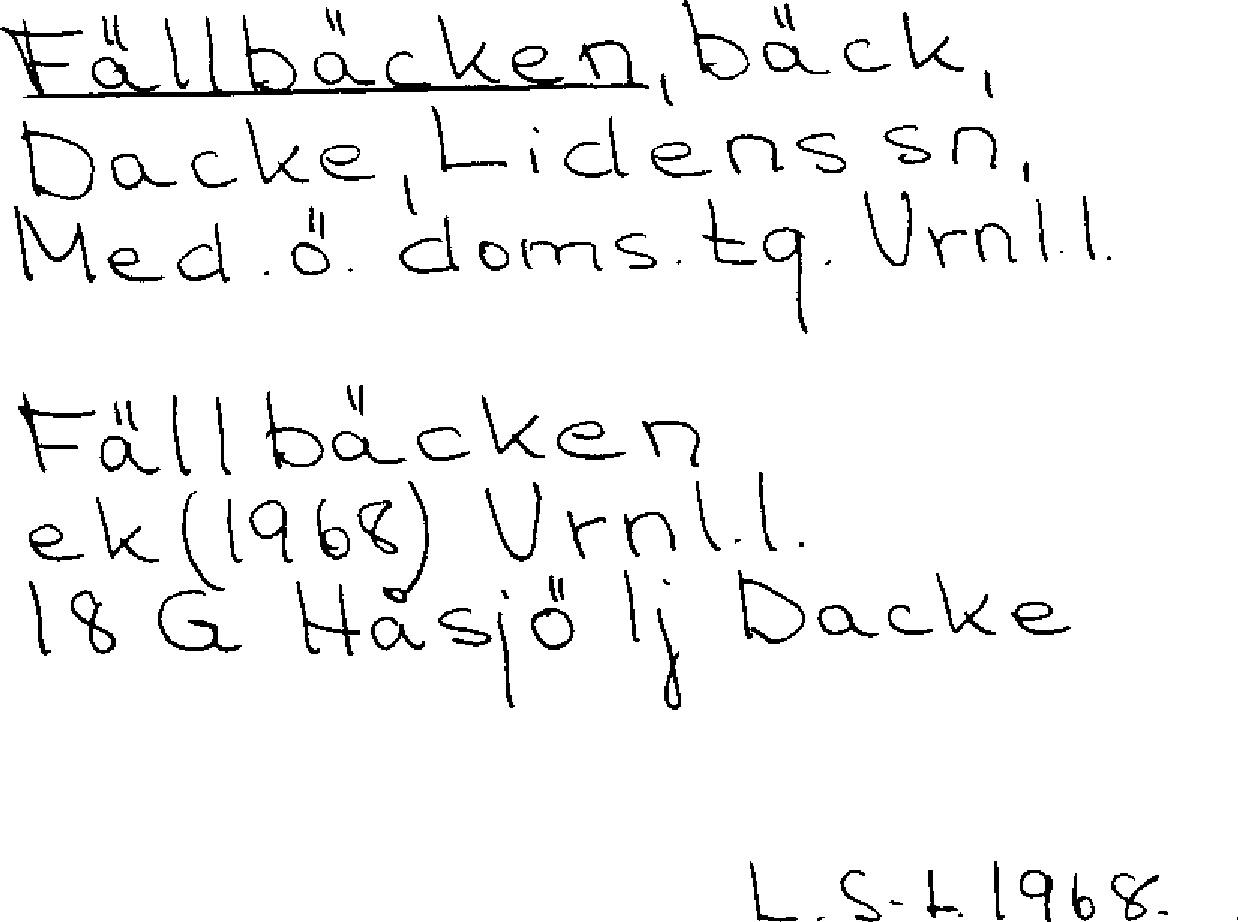 Fällbäcken, bäck,
Dacke, Lidens sn,
Med. ö. doms. tg. Vrnl.l.
Fällbäcken
ek (1968) Vrnl.l.
18 G Håsjö 1j Dacke
L. S-t. 1968.